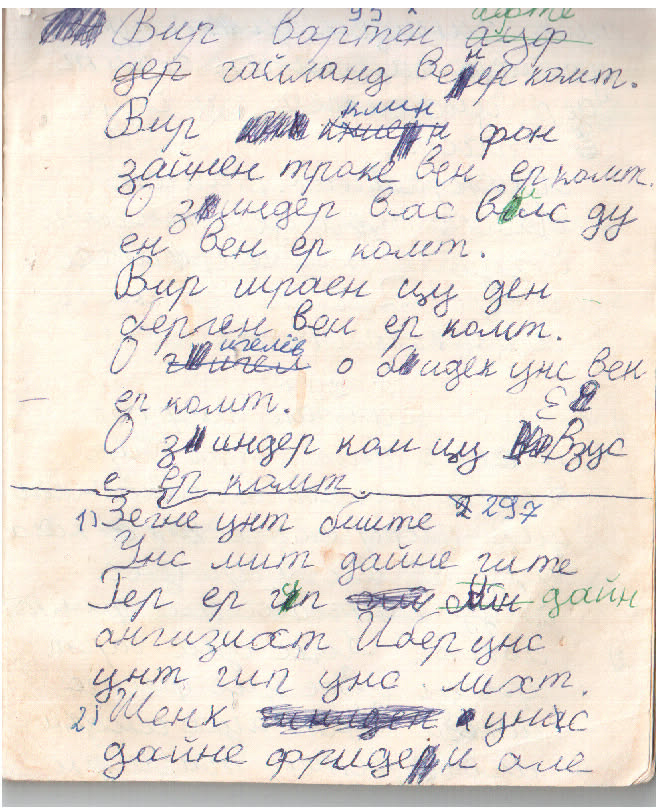 Вир вартен ауф
дер гайланд венер комт.
Вир клин фон
зайнен троке вен ер комт.
О зиндер вас вилс ду
ен вен ер комт.
Вир шраен цу ден
берген вен ер комт.
О игелев о бидек цнс вен
ер комт.
О зиндер ком цу Езус
е ер комт
1) Зегне цнт биште 297
Унс мит дайне гите
Гер ер гип дайн
ангизихт Ибер цнс
цнт гип цнс лихт.
2) Шенк цнс
дайне фриден але